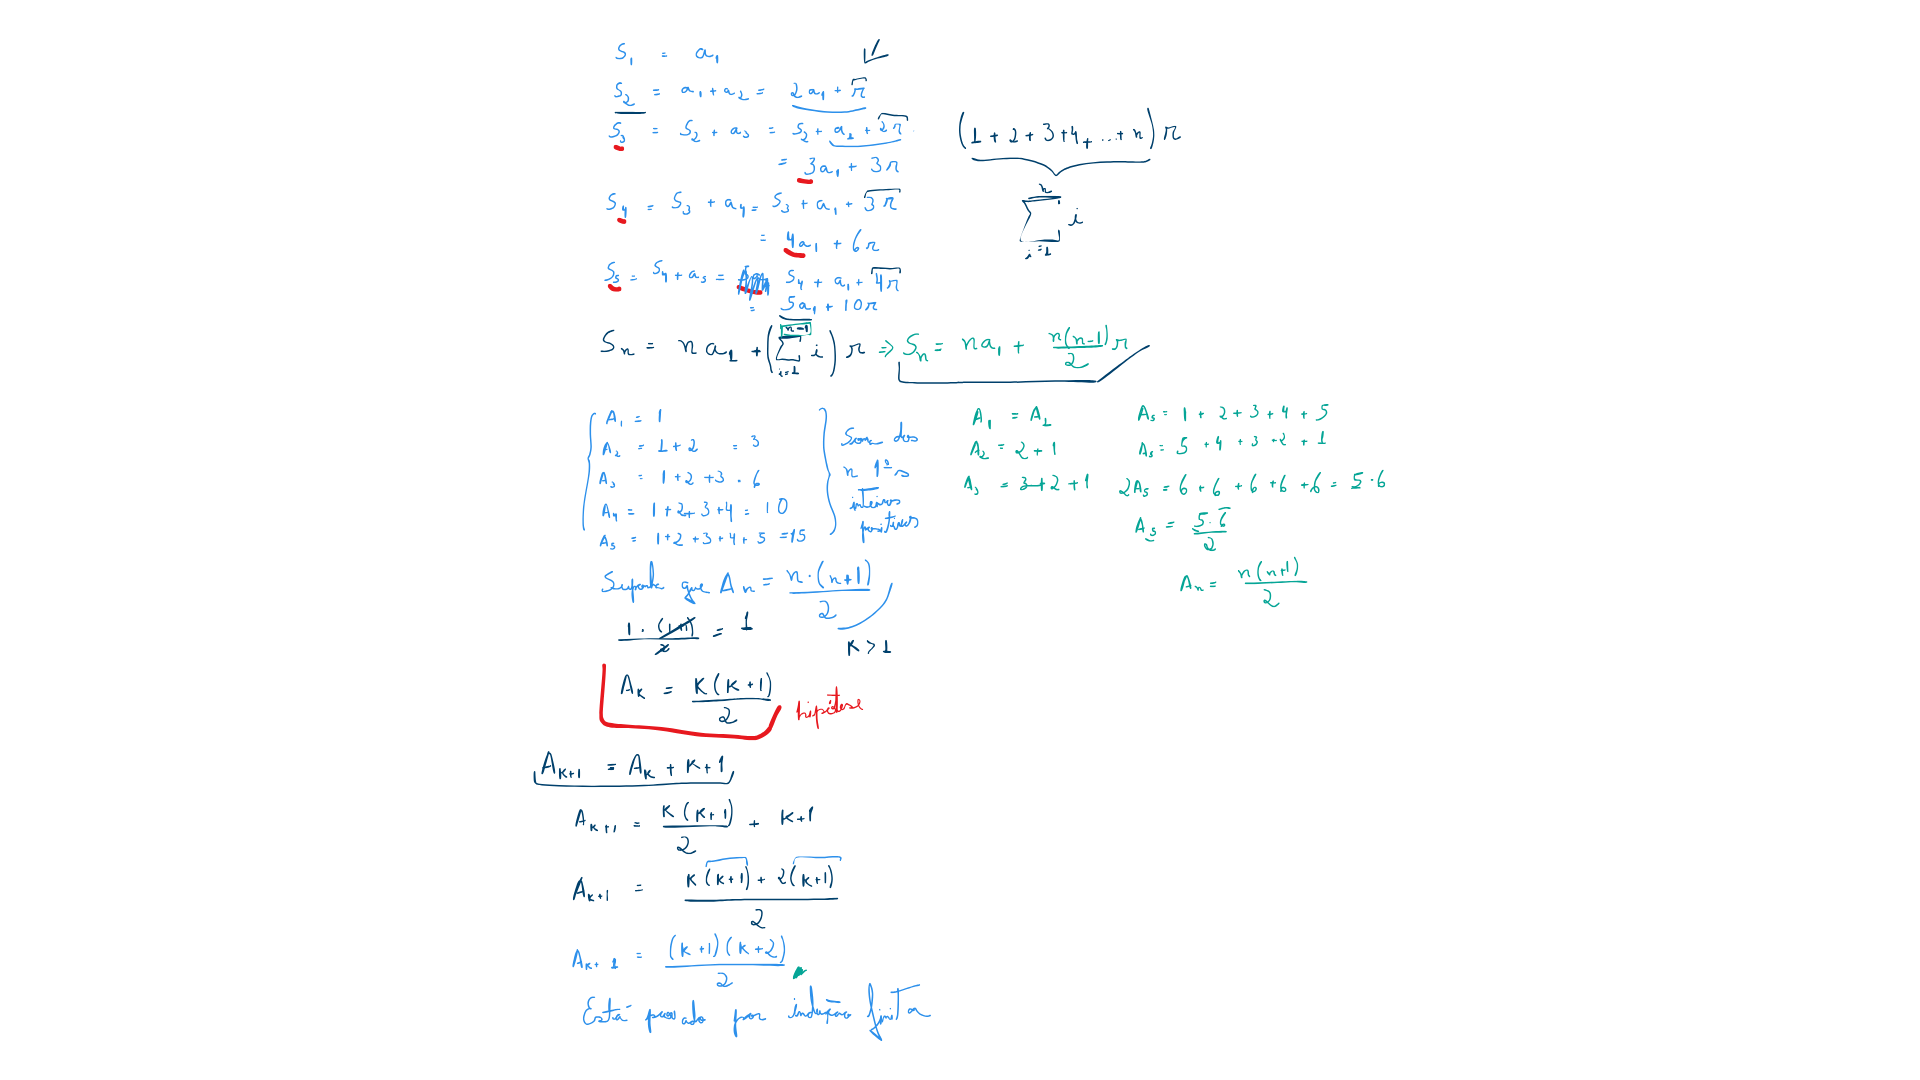 S₁ = a₁
S₂ = a₁ + a₂ = 2a₁ + r
S₃ = S₂ + a₃ = S₂ + a₁ + 2r
= 3a₁ + 3r
S₄ = S₃ + a₄ = S₃ + a₁ + 3r
= 4a₁ + 6r
S₅ = S₄ + a₅ = S₄ + a₁ + 4r
= 5a₁ + 10r
(1 + 2 + 3 + 4 + ... + n) r
n
∑ i
i=1
Sₙ = n a₁ + (∑_{i=1}^{n-1} i) r ⇒ Sₙ = na₁ + n(n-1)/2 r
A₁ = 1
A₂ = 1 + 2 = 3
A₃ = 1 + 2 + 3 . 6
A₄ = 1 + 2 + 3 + 4 = 10
A₅ = 1 + 2 + 3 + 4 + 5 = 15
Soma dos
n 1ºs
inteiros
positivos
A₁ = A₁
A₂ = 2 + 1
A₃ = 3 + 2 + 1
A₅ = 1 + 2 + 3 + 4 + 5
A₅ = 5 + 4 + 3 + 2 + 1
2A₅ = 6 + 6 + 6 + 6 + 6 = 5·6
A₅ = 5·6/2
Aₙ = n(n+1)/2
Suponha que Aₙ = n·(n+1)/2
1·(1+1)/2 = 1
K > 1
A_K = K(K+1)/2
hipótese
A_{K+1} = A_K + K+1
A_{K+1} = K(K+1)/2 + K+1
A_{K+1} = (K(K+1) + 2(K+1))/2
A_{K+1} = (K+1)(K+2)/2
Está provado por indução finita